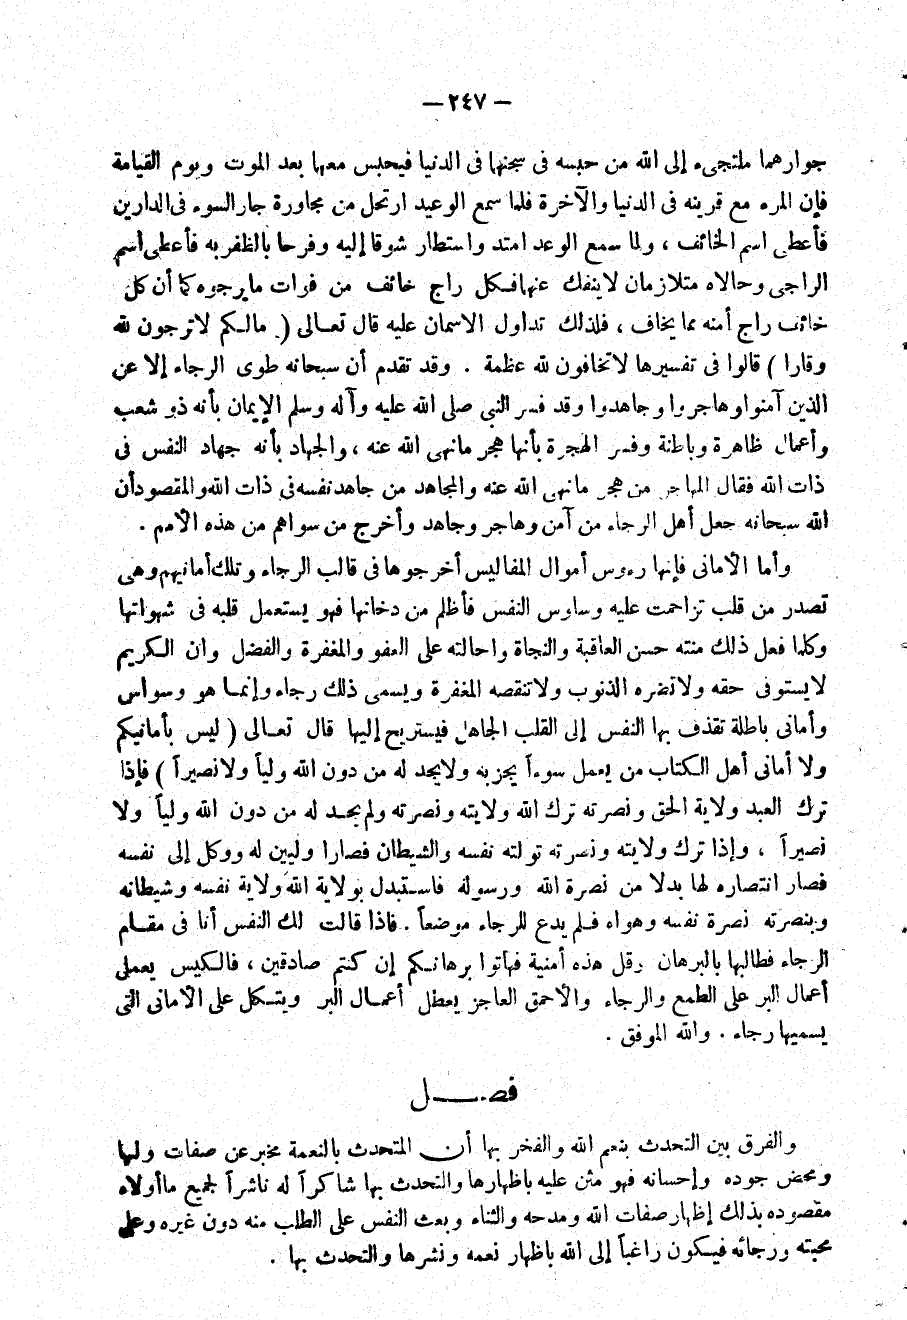 — ٢٤٧ —
جوارهما ملتجىء إلى الله من حبسه فى سجنها فى الدنيا فيحبس معها بعد الموت ويوم القيامة
فإن المرء مع قرينه فى الدنيا والآخرة فلما سمع الوعيد ارتحل من مجاورة جار السوء فى الدارين
فأعطى اسم الخائف ، ولما سمع الوعد امتد واستطار شوقا إليه وفرحا بالظفر به فأعطى اسم
الراجى وحالاه متلازمان لا ينفك عنهما فكل راج خائف من فوات ما يرجوه كما أن كل
خائف راج أمنه مما يخاف ، فلذلك تداول الاسمان عليه قال تعالى ( مالكم لا ترجون لله
وقارا ) قالوا فى تفسيرها لا تخافون لله عظمة . وقد تقدم أن سبحانه طوى الرجاء إلا عن
الذين آمنوا وهاجروا وجاهدوا وقد فسر النبى صلى الله عليه وآله وسلم الإيمان بأنه ذو شعب
وأعمال ظاهرة وباطنة وفسر الهجرة بأنها هجر مانهى الله عنه ، والجهاد بأنه جهاد النفس فى
ذات الله فقال المهاجر من هجر مانهى الله عنه والمجاهد من جاهد نفسه فى ذات الله والمقصود أن
الله سبحانه جعل أهل الرجاء من آمن وهاجر وجاهد وأخرج من سواهم من هذه الأمم .
وأما الأمانى فإنها رءوس أموال المفاليس أخرجوها فى قالب الرجاء وتلك أمانيهم وهى
تصدر من قلب تزاحمت عليه وساوس النفس فأظلم من دخانها فهو يستعمل قلبه فى شهواتها
وكلما فعل ذلك منته حسن العاقبة والنجاة واحالته على العفو والمغفرة والفضل وان الكريم
لا يستوفى حقه ولا تضره الذنوب ولا تنقصه المغفرة ويسمى ذلك رجاء وإنما هو وسواس
وأمانى باطلة تقذف بها النفس إلى القلب الجاهل فيستريح إليها قال تعالى ( ليس بأمانيكم
ولا أمانى أهل الكتاب من يعمل سوءاً يجز به ولا يجد له من دون الله ولياً ولا نصيراً ) فإذا
ترك العبد ولاية الحق ونصرته ترك الله ولايته ونصرته ولم يجد له من دون الله ولياً ولا
نصيراً ، وإذا ترك ولايته ونصرته تولته نفسه والشيطان فصارا وليين له ووكل إلى نفسه
فصار انتصاره لها بدلا من نصرة الله ورسوله فاستبدل بولاية الله ولاية نفسه وشيطانه
وبنصرته نصرة نفسه وهواه فلم يدع للرجاء موضعاً . فاذا قالت لك النفس أنا فى مقام
الرجاء فطالبها بالبرهان وقل هذه أمنية فهاتوا برهانكم إن كنتم صادقين ، فالكيس يعمل
أعمال البر على الطمع والرجاء والأحمق العاجز يعطل أعمال البر ويتكل على الأمانى التى
يسميها رجاء . والله الموفق .
فصل
والفرق بين التحدث بنعم الله والفخر بها أن المتحدث بالنعمة مخبر عن صفات وليها
ومحض جوده وإحسانه فهو مثن عليه باظهارها والتحدث بها شاكراً له ناشراً لجميع ما أولاه
مقصوده بذلك إظهار صفات الله ومدحه والثناء وبعث النفس على الطلب منه دون غيره وعلى
محبته ورجائه فيكون راغباً إلى الله باظهار نعمه ونشرها والتحدث بها .